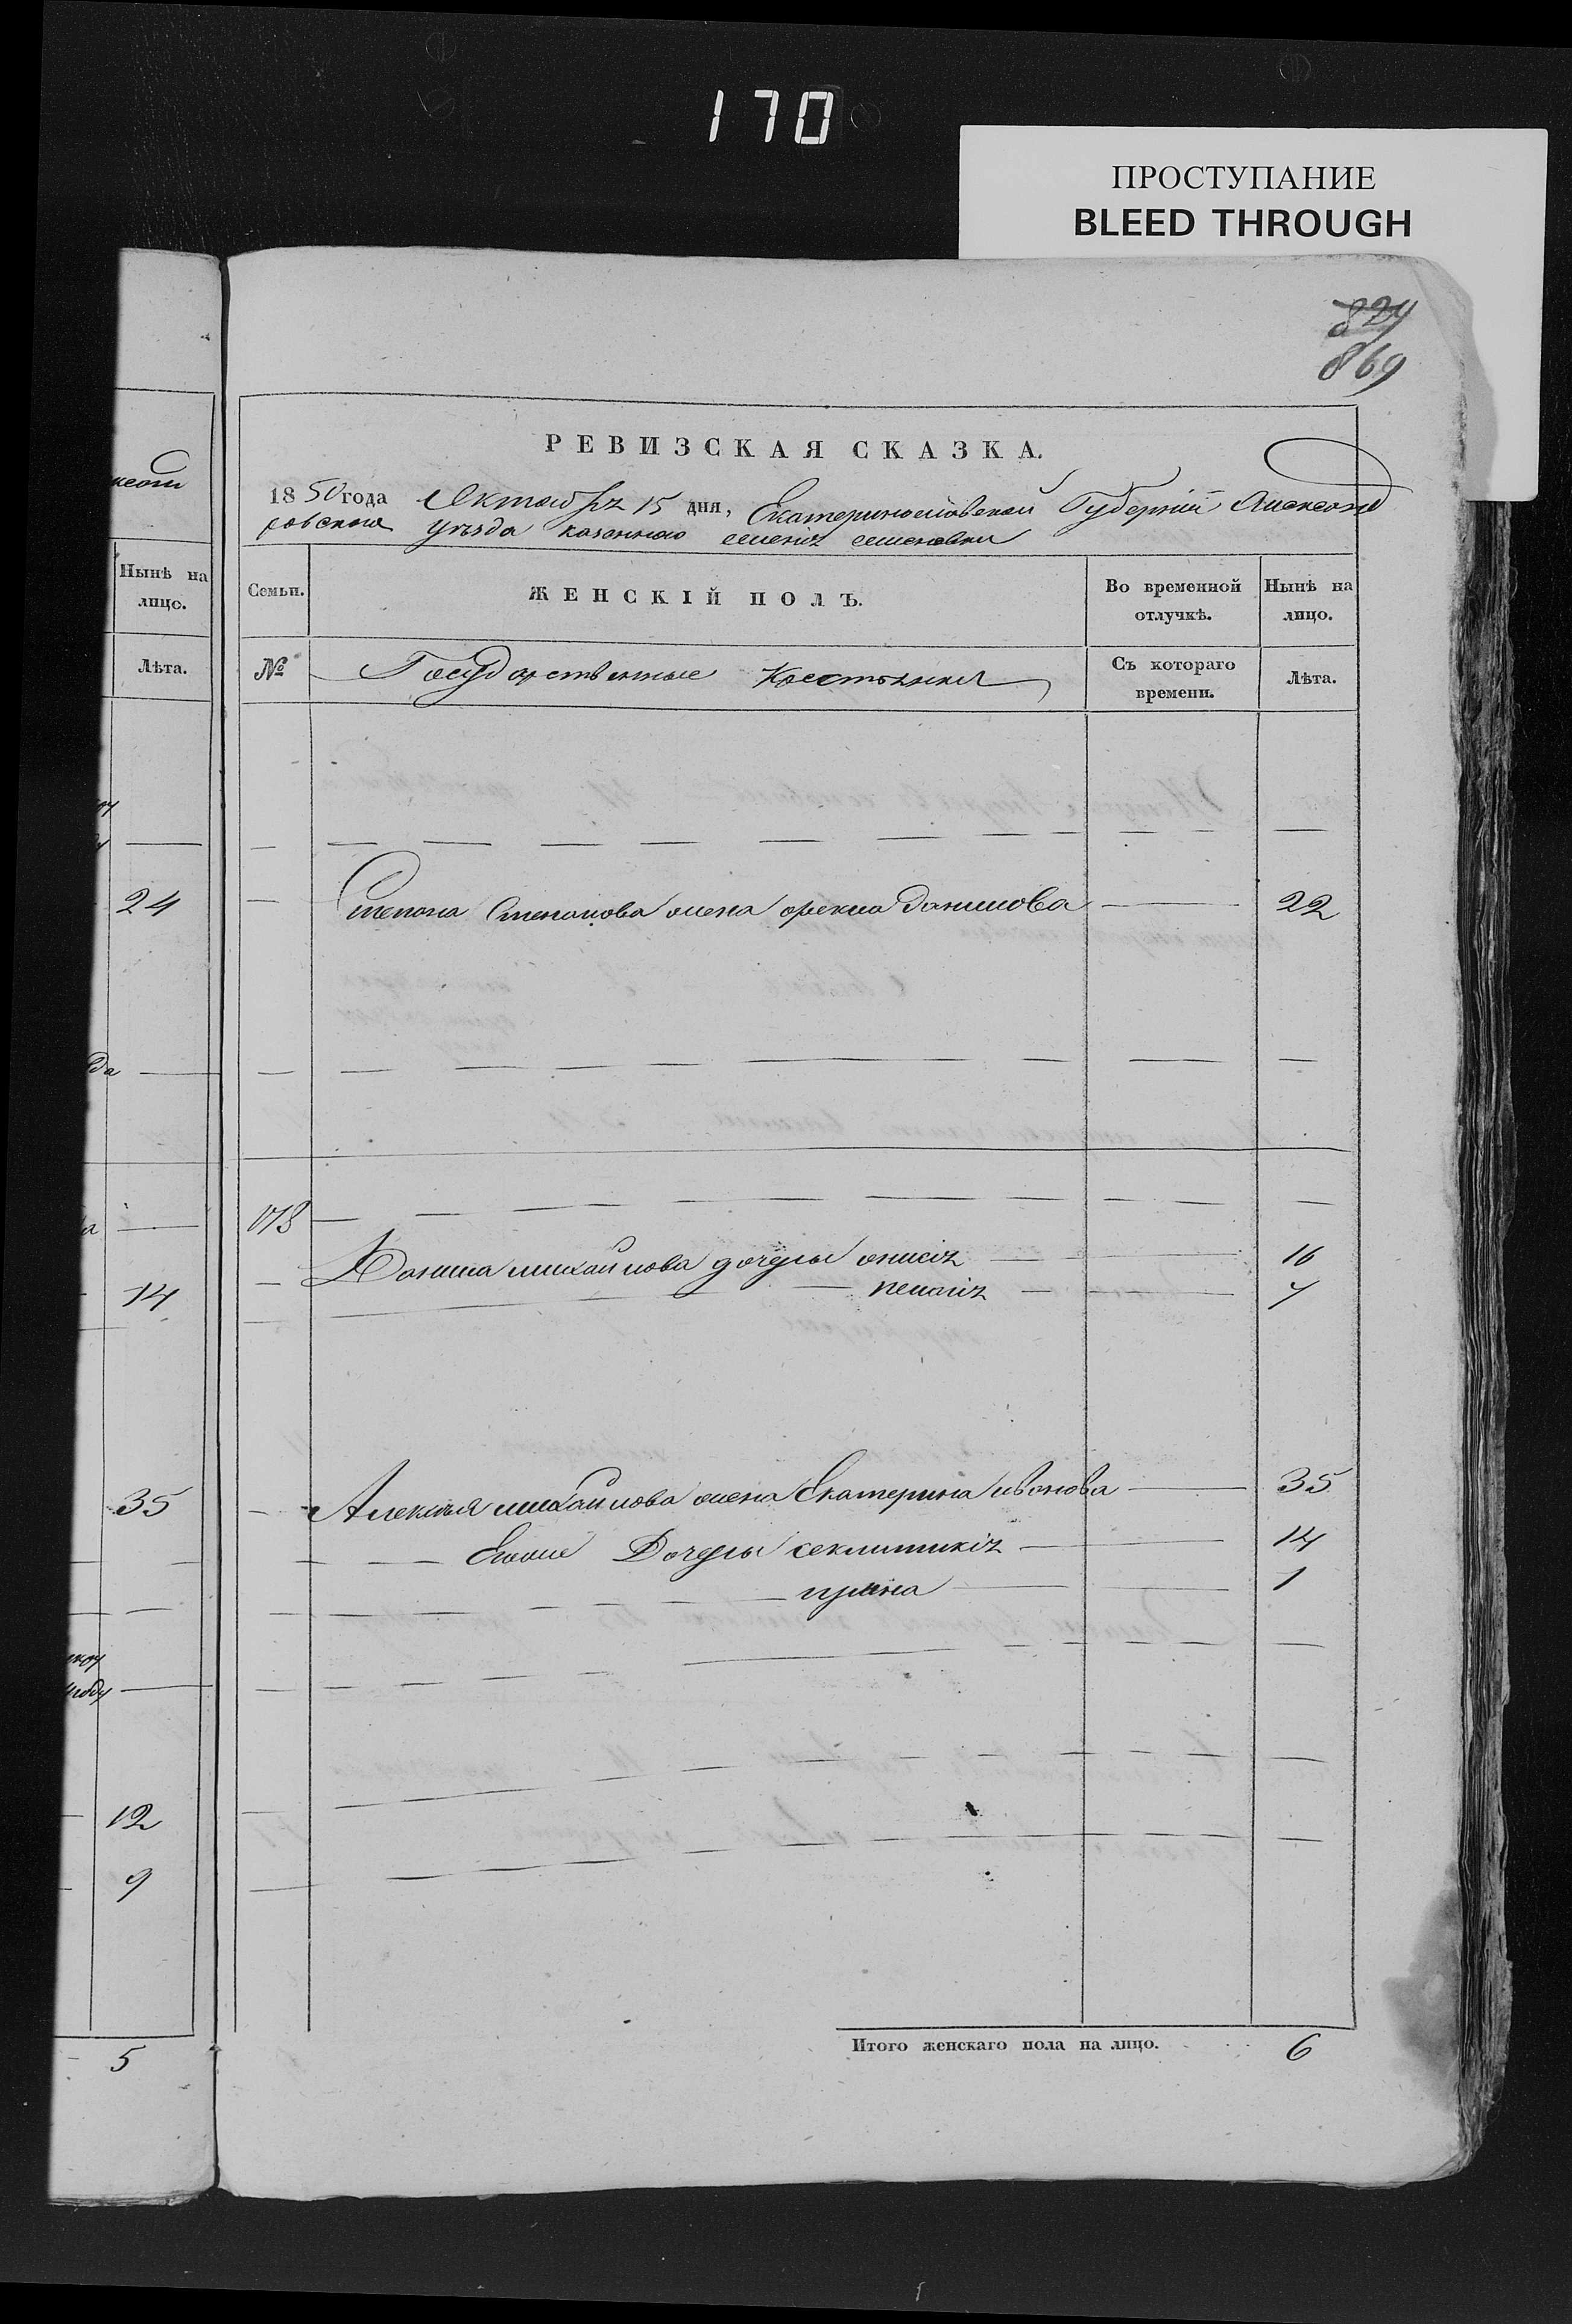 170
ПРОСТУПАНИЕ
BLEED THROUGH
824
869
РЕВИЗСКАЯ СКАЗКА.
1850 года Октября 15 дня, Екатеринославской Губернии Александ
ровского уезда казенного селения семеновки
Нынѣ на лицо.
Семьи.
ЖЕНСКІЙ ПОЛЪ.
Во временной отлучкѣ.
Нынѣ на лицо.
Лѣта.
№
Государственные Крестьяни
Съ котораго времени.
Лѣта.
24
Степана Степанова жена Данилова 22
да
178
Данила михайлова дочери онисія 16
14
пелагія 7
35
Алексея михайлова жена Екатерина иванова 35
Дочери секлитикія 14
ирина 1
12
9
5
Итого женскаго пола на лицо. 6